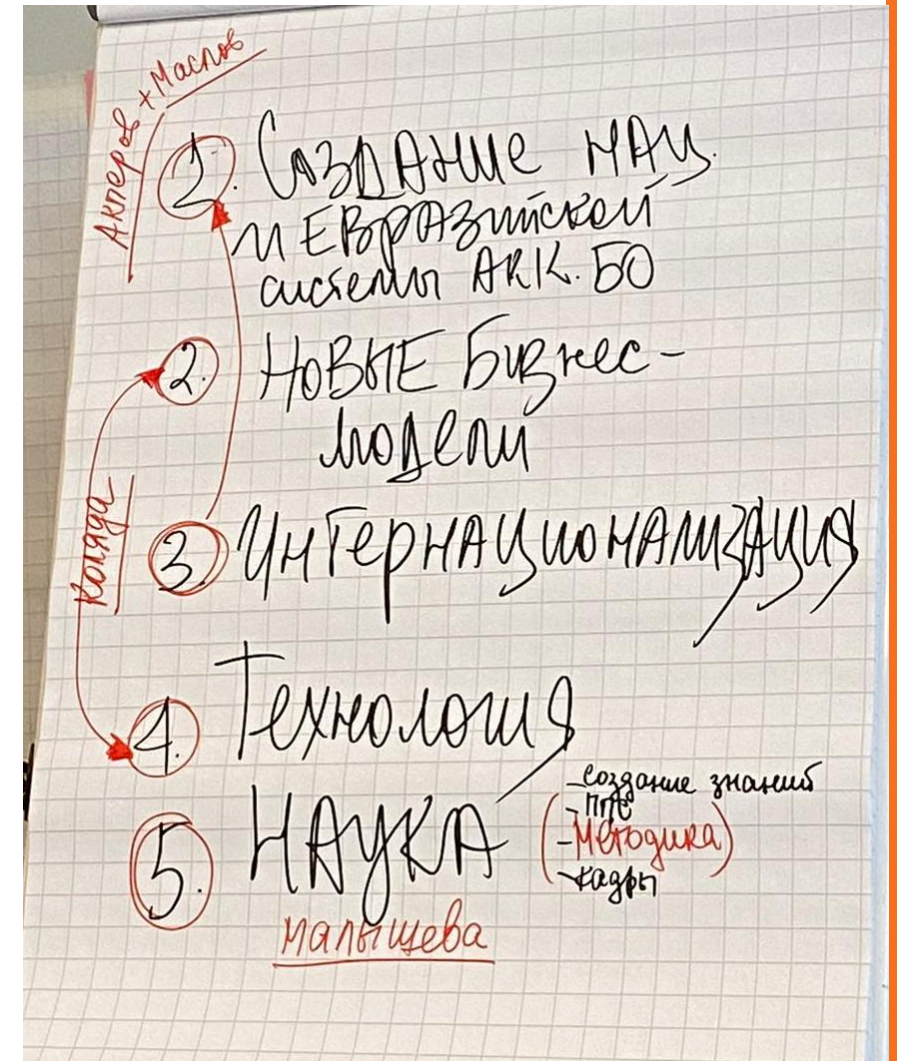 Акперов + Маслов
1. Создание нац.
и Евразийской
системы АКК. БО
2. Новые бизнес-
модели
Коляда
3. Интернационализация
4. Технология
- создание знаний
5. Наука
- ППС
- Методика
- кадры
Малышева